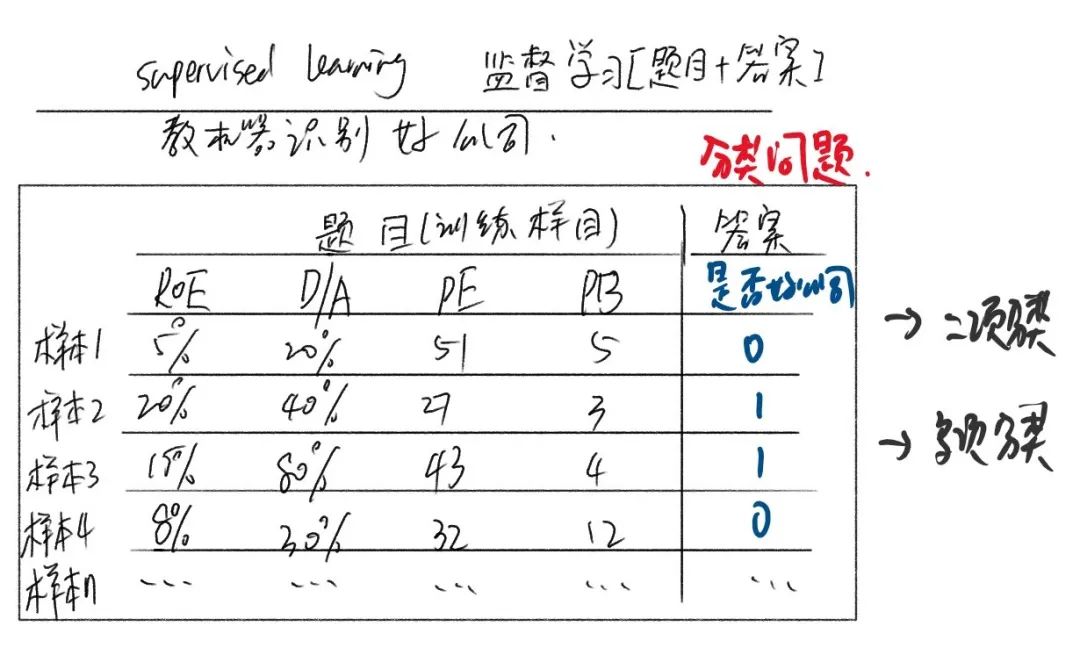 supervised learning 监督学习[题目+答案]
教机器识别好公司.
分类问题.
题目(训练样目) 答案
ROE D/A PE PB 是否好公司
样本1 5% 20% 51 5 0
→ 二项分类
样本2 20% 40% 27 3 1
→ 多项分类
样本3 15% 80% 43 4 1
样本4 8% 30% 32 12 0
样本n ... ... ... ... ...